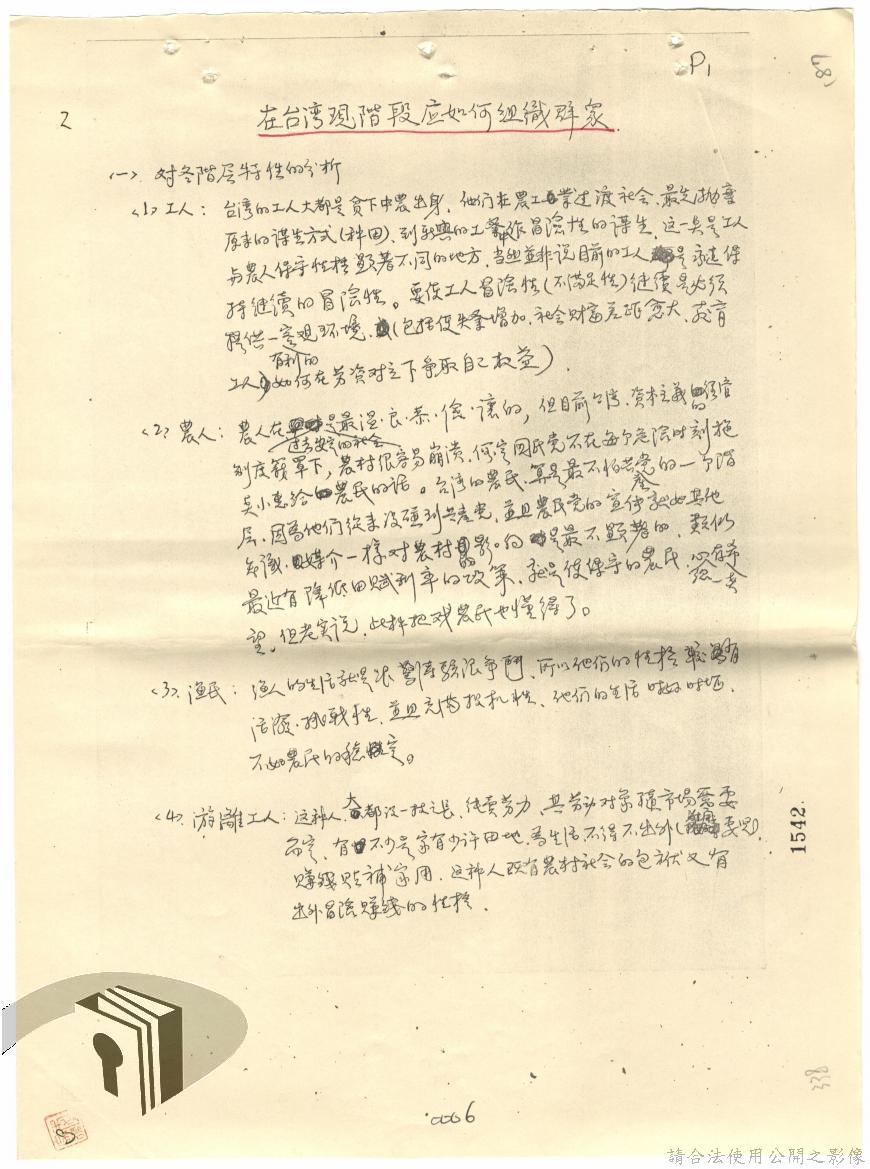 P1
2
在台湾現階段应如何组織群众
(一) 对各階层特性的分析
(1) 工人：台湾的工人大都是贫下中農出身，他们在農工業过渡社会，最先抛棄
原来的谋生方式(种田)，到新興的工業作冒險性的谋生，这一点是工人
与農人保守性格顯著不同的地方，当然並非说目前的工人是永遠保
持继续的冒險性。要使工人冒險性(不满足性)继续是必须
提供一客观环境，(包括使失業增加，社会财富差距愈大，教育
有利的
工人如何在劳资对立下争取自己权益)．
(2) 農人：農人在是最温·良·恭·儉·讓的，但目前台湾，资本主義的
过去安定的社会
制度籠罩下，農村很容易崩溃，何况国民党不在每个危险时刻施
点小惠给農民的话。台湾的農民，算是最不怕共党的一个階
层，因為他们從来没碰到共產党，並且農民党的宣传就如其他
知識媒介一样对農村的影响是最不顕著的，類似
最近有降低田赋利率的政策，就是使保守的農民，心存希
望，但老实说，此种把戏農民也懂得了。
(3) 渔民：渔人的生活就是跟驚濤駭浪争鬥，所以他们的性格較具有
活潑·挑戰性，並且充满投机性，他们的生活时好时坏，
不如農民的稳定。
(4) 游離工人：这种人，大都没一技之長，纯卖劳力，其劳动对象随市场需要
而定，有不少是家有少许田地，為生活不得不出外
賺錢贴補家用，这种人既有農村社会的包袱又有
出外冒險賺錢的性格．
1542.
0006
338
請合法使用公開之影像